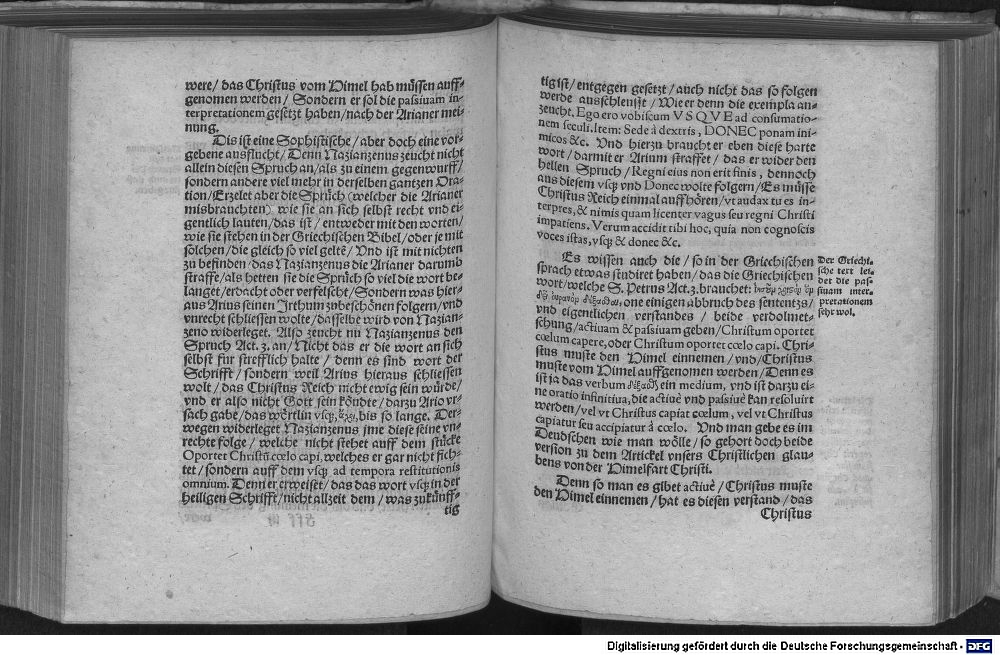 were/ das Christus vom Himel hab müssen auff-
genomen werden/ Sondern er sol die passiuam in-
terpretationem gesetzt haben/ nach der Arianer mei-
nung.
Dis ist eine Sophistische/ aber doch eine vor-
gebene ausflucht/ Denn Nazianzenus zeucht nicht
allein diesen Spruch an/ als zu einem gegenwurff/
sondern andere viel mehr in derselben gantzen Ora-
tion/ Erzelet aber die Sprüch (welcher die Arianer
misbrauchten) wie sie an sich selbst recht vnd ei-
gentlich lauten/ das ist/ entweder mit den worten/
wie sie stehen in der Griechischen Bibel/ oder je mit
solchen/ die gleich so viel geltē/ Vnd ist mit nichten
zu befinden/ das Nazianzenus die Arianer darumb
straffe/ als hetten sie die Sprüch so viel die wort be-
langet/ erdacht oder verfelscht/ Sondern was hier-
aus Arius seinen Irthum zubeschönen folgern/ vnd
vnrecht schliessen wolte/ dasselbe wird von Nazian-
zeno widerleget. Also zeucht nu Nazianzenus den
Spruch Act. 3. an/ Nicht das er die wort an sich
selbst für strefflich halte/ denn es sind wort der
Schrifft/ sondern weil Arius hieraus schliessen
wolt/ das Christus Reich nicht ewig sein würde/
vnd er also nicht Gott sein köndte/ darzu Ario vr-
sach gabe/ das wörtlin vsq;, ἄχρι, bis so lange. Der-
wegen widerleget Nazianzenus jme diese seine vn-
rechte folge/ welche nicht stehet auff dem stücke
Oportet Christū cœlo capi, welches er gar nicht fich-
tet/ sondern auff dem vsq; ad tempora restitutionis
omnium. Denn er erweiset/ das das wort vsq; in der
heiligen Schrifft/ nicht allzeit dem/ was zukünff-
tig
tig ist/ entgegen gesetzt/ auch nicht das so folgen
werde ausschleusst/ Wie er denn die exempla an-
zeucht, Ego ero vobiscum VSQVE ad consumatio-
nem seculi. Item: Sede à dextris, DONEC ponam ini-
micos &c. Vnd hierzu braucht er eben diese harte
wort/ darmit er Arium straffet/ das er wider den
hellen Spruch/ Regni eius non erit finis, dennoch
aus diesem vsq; vnd Donec wolte folgern/ Es müsse
Christus Reich einmal auffhören/ vt audax tu es in-
terpres, & nimis quam licenter vagus seu regni Christi
impatiens. Verum accidit tibi hoc, quia non cognoscis
voces istas, vsq; & donec &c.
Es wissen auch die/ so in der Griechischen
sprach etwas studiret haben/ das die Griechischen
wort/ welche S. Petrus Act. 3. brauchet:
one einigen abbruch des sententzs/
vnd eigentlichen verstandes/ beide verdolmet-
schung/ actiuam & passiuam geben/ Christum oportet
cœlum capere, oder Christum oportet cœlo capi. Chri-
stus muste den Himel einnemen/ vnd/ Christus
muste vom Himel auffgenomen werden/ Denn es
ist ja das verbum ein medium, vnd ist darzu ei-
ne oratio infinitiua, die actiuè vnd passiuè kan resoluirt
werden/ vel vt Christus capiat cœlum, vel vt Christus
capiatur seu accipiatur à cœlo. Vnd man gebe es im
Deudschen wie man wölle/ so gehort doch beide
version zu dem Artickel vnsers Christlichen glau-
bens von der Himelfart Christi.
Denn so man es gibet actiuè/ Christus muste
den Himel einnemen/ hat es diesen verstand/ das
Christus
Der Griechi-
sche text lei-
der die pas-
siuam inter-
pretationem
sehr wol.
Digitalisierung gefördert durch die Deutsche Forschungsgemeinschaft - DFG